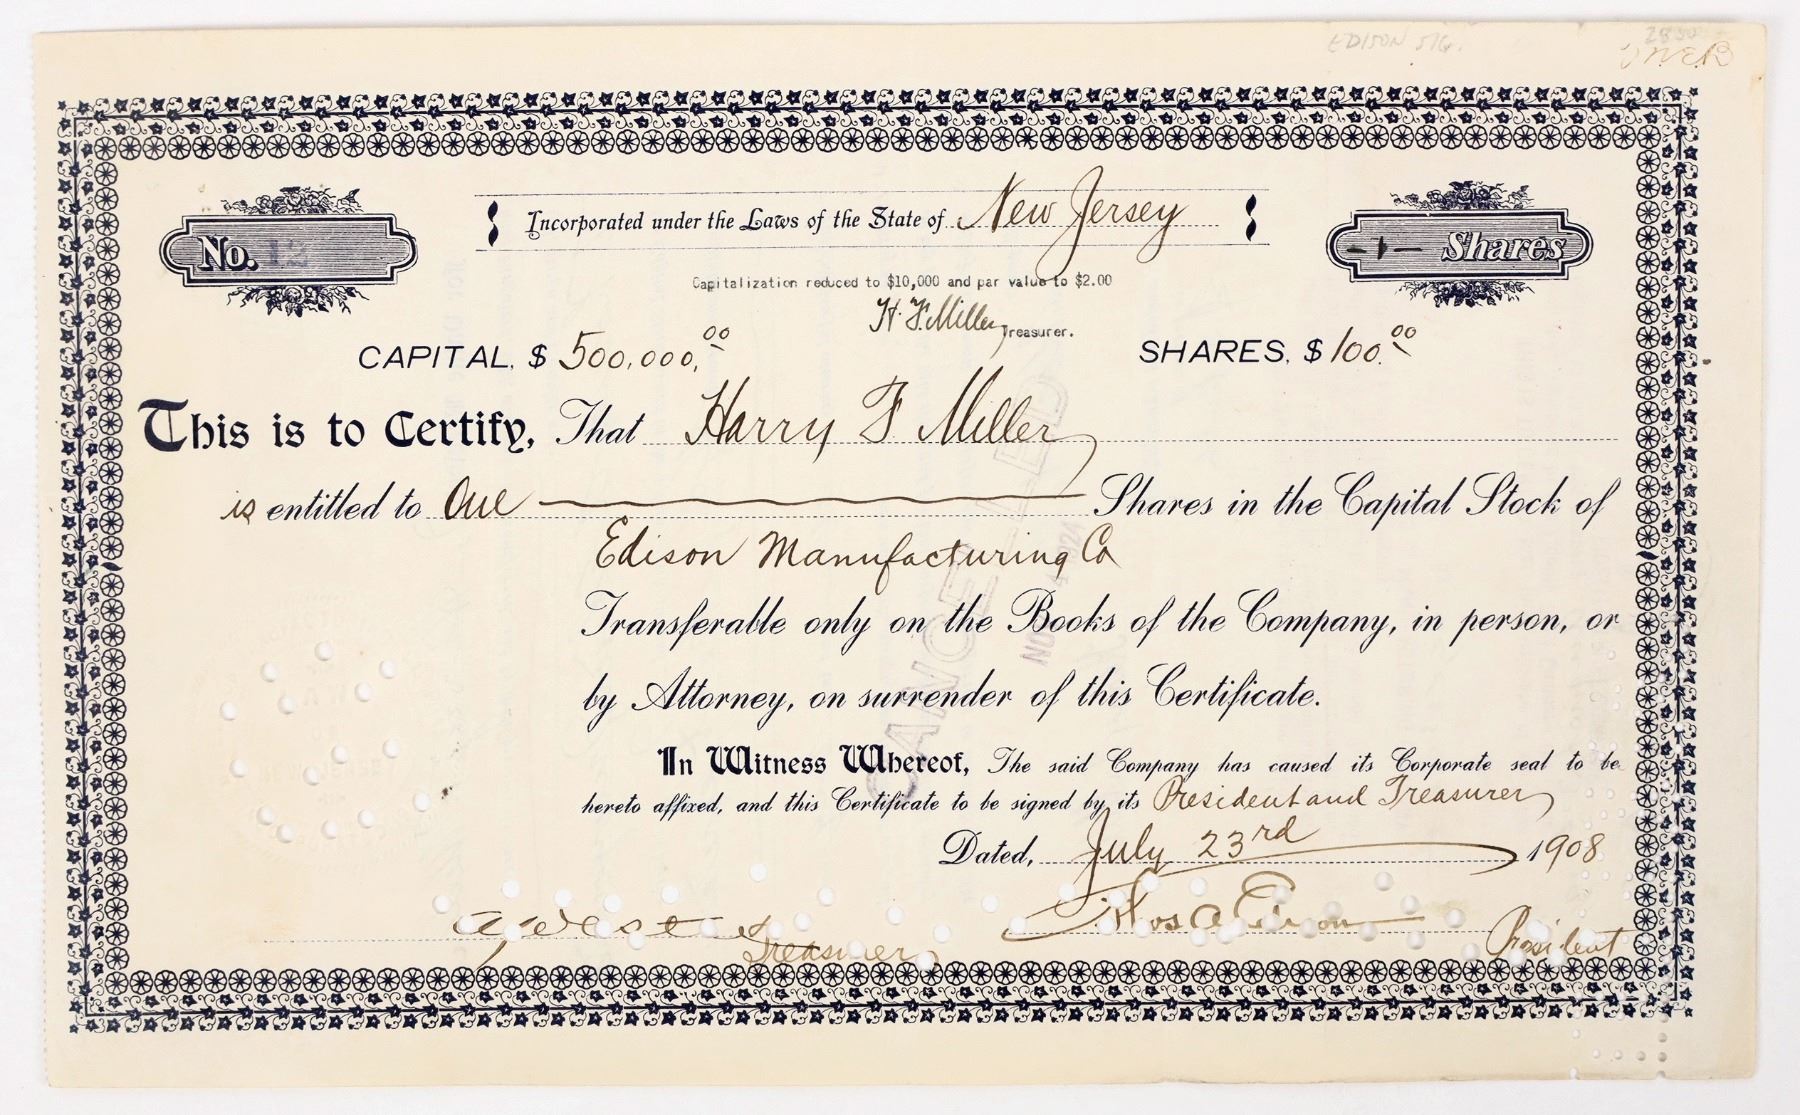 EDISON SIG.
No. 12
Incorporated under the Laws of the State of New Jersey
-1- Shares
Capitalization reduced to $10,000 and par value to $2.00
H. F. Miller Treasurer.
CAPITAL, $ 500,000.00
SHARES, $ 100.00
This is to Certify, That Harry F Miller
is entitled to One Shares in the Capital Stock of
Edison Manufacturing Co
Transferable only on the Books of the Company, in person, or
by Attorney, on surrender of this Certificate.
In Witness Whereof, The said Company has caused its Corporate seal to be
hereto affixed, and this Certificate to be signed by its President and Treasurer
Dated, July 23rd 1908
Treasurer
Thos A Edison President
CANCELLED